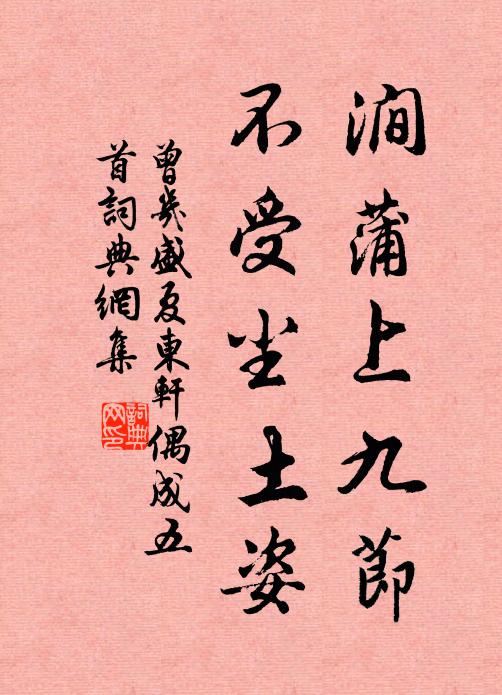 澗蒲上九節
不受尘土姿
曾幾盛夏東軒偶成五
首詞典網集
詞典
网印